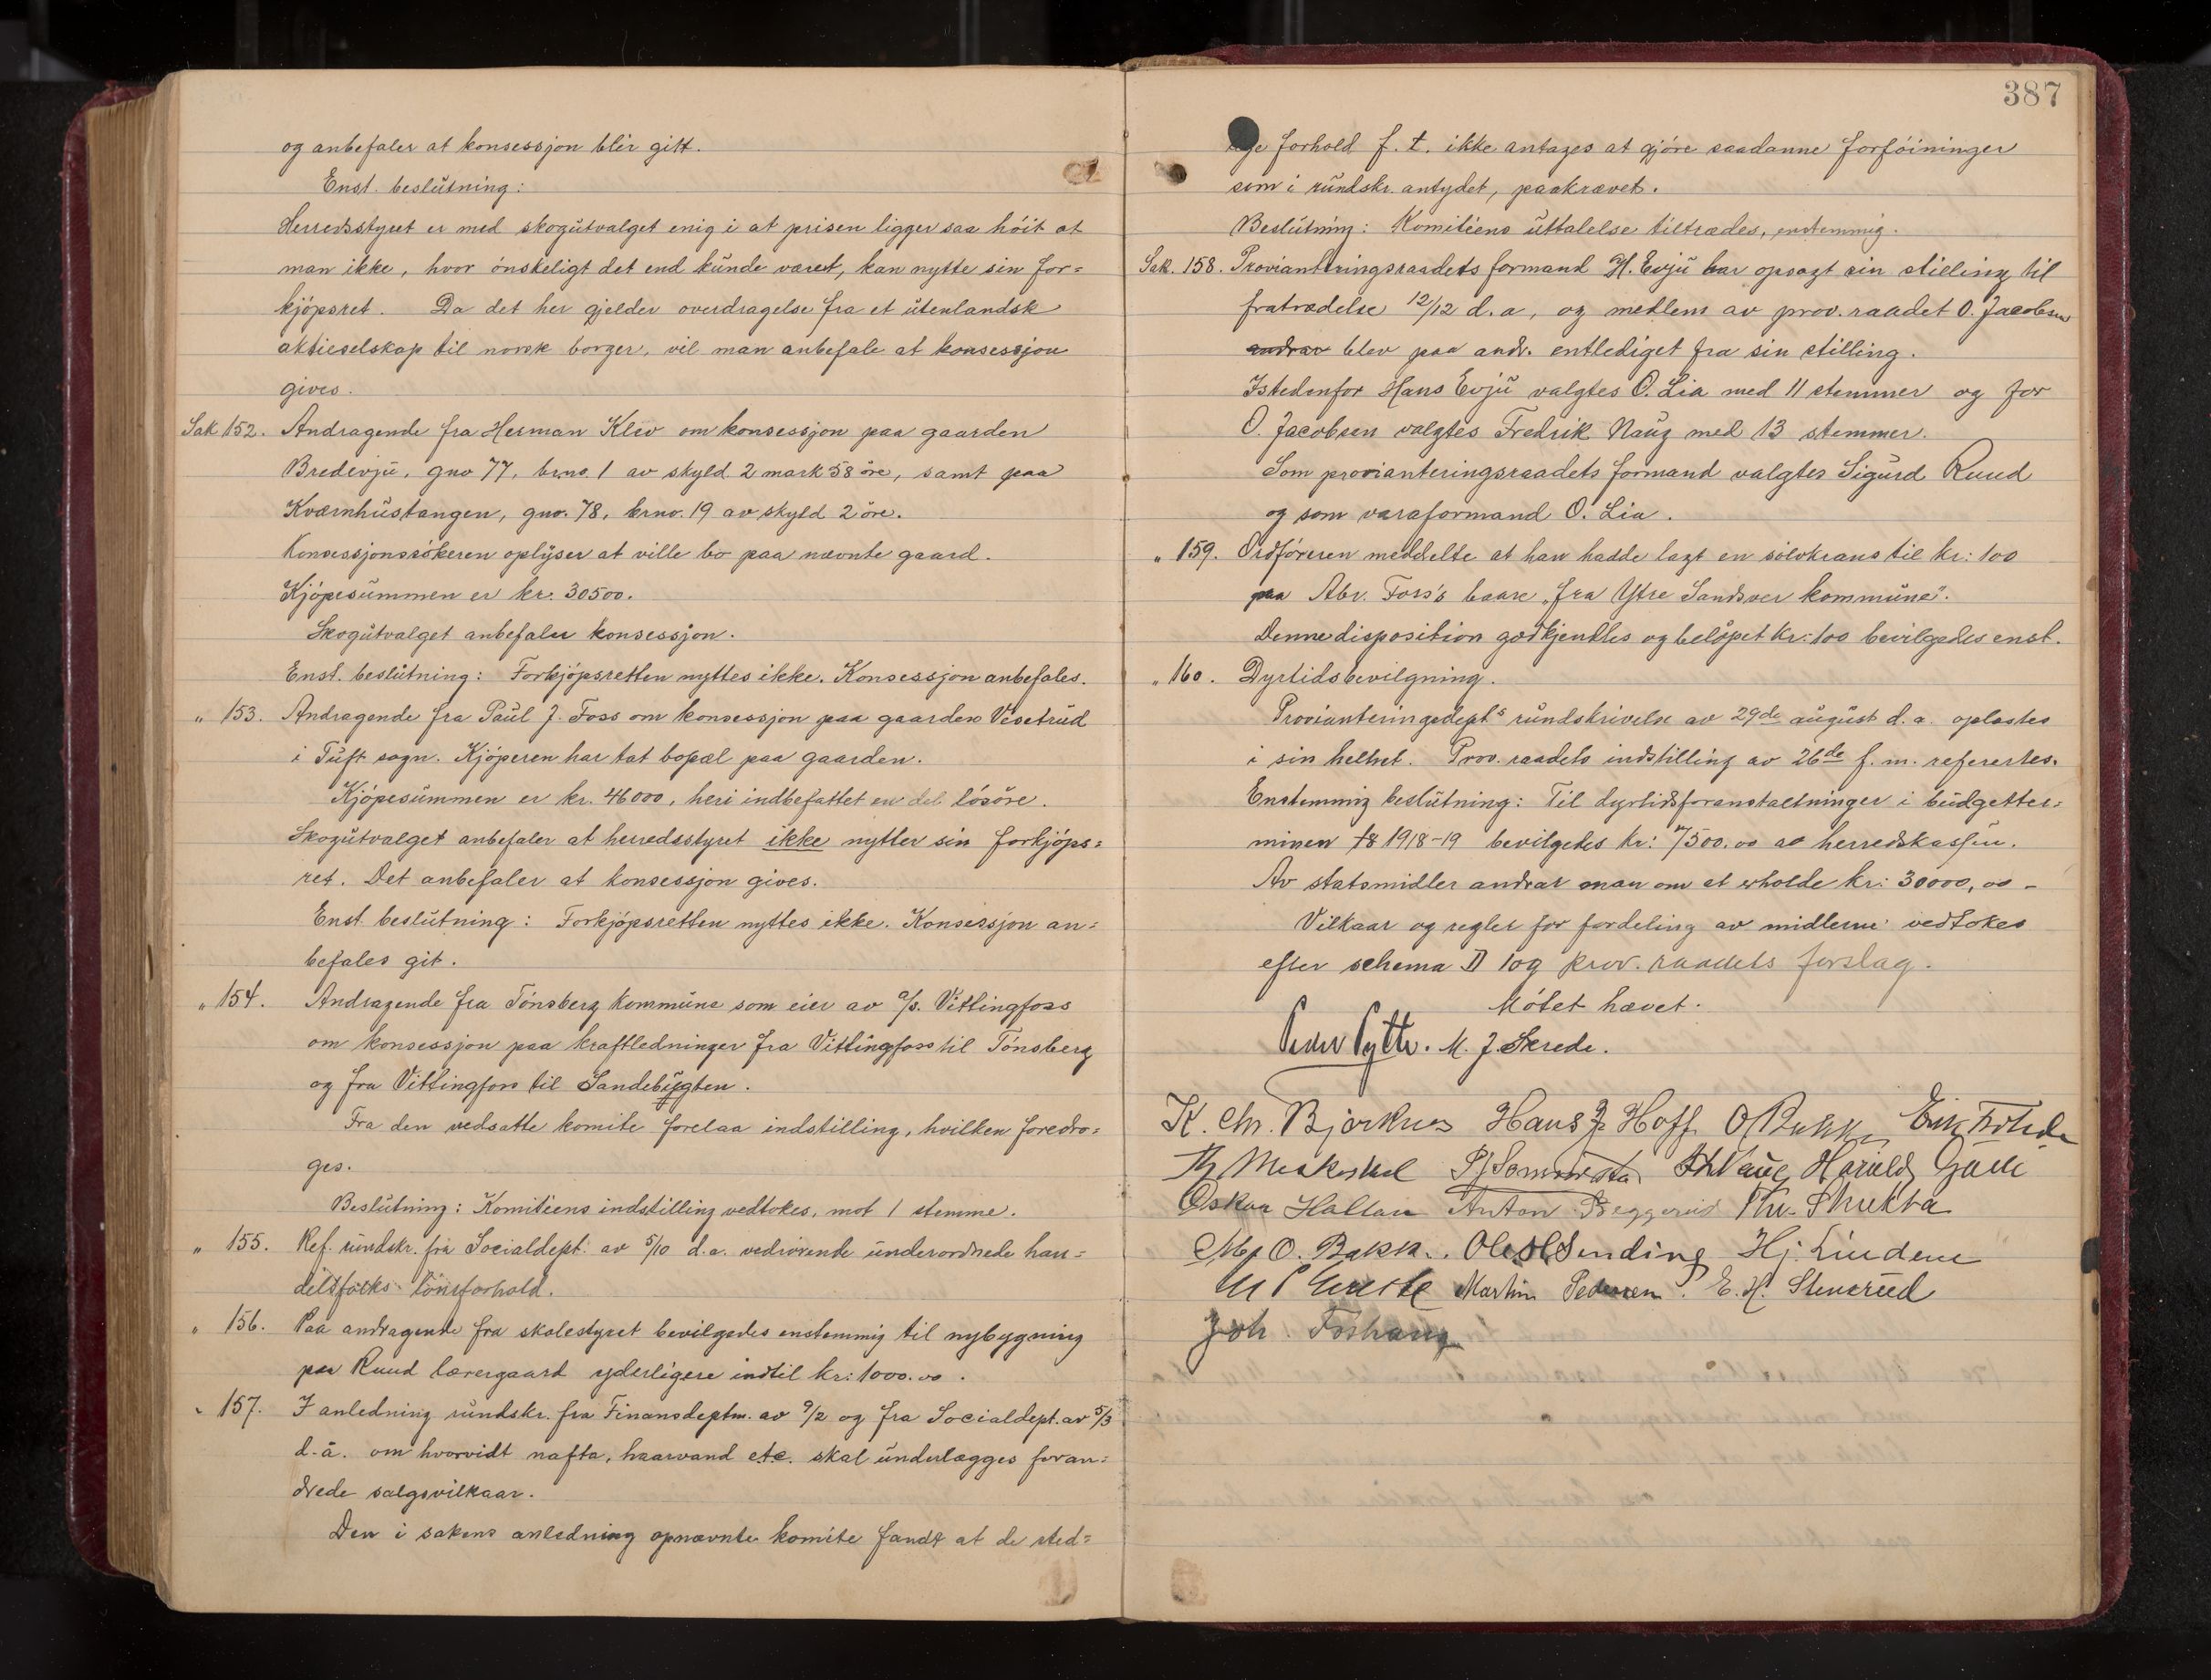 og anbefaler at konsessjon blir gitt.
Enst. beslutning:
Herredsstyret er med skogutvalget enig i at prisen ligger saa höit at
man ikke, hvor önskeligt det end kunde været, kan nytte sin for=
kjöpsret. Da det her gjelder overdragelse fra et utenlandsk
aktieselskap til norsk borger, vil man anbefale at konsessjon
gives.
Sak 152. Andragende fra Herman Kliv om konsessjon paa gaarden
Bredevju, gno 77, brno. 1 av skyld 2 mark 58 öre, samt paa
Kværnhustangen, gno. 78, brno. 19 av skyld 2 öre.
Konsessjonssökeren oplyser at ville bo paa nævnte gaard.
Kjöpesummen er kr. 30500.
Skogutvalget anbefaler konsessjon.
Enst. beslutning: Forkjöpsretten nyttes ikke. Konsessjon anbefales.
" 153. Andragende fra Paul J. Foss om konsessjon paa gaarden Visetrud
i Tuft sogn. Kjöperen har tat bopæl paa gaarden.
Kjöpesummen er kr. 46000, heri indbefattet en del lösöre.
Skogutvalget anbefaler at herredsstyret ikke nytter sin forkjöps=
ret. Det anbefaler at konsessjon gives.
Enst beslutning: Forkjöpsretten nyttes ikke. Konsessjon an=
befales git.
" 154. Andragende fra Tönsberg kommune som eier av a/s. Vittingfoss
om konsessjon paa kraftledninger fra Vittingfoss til Tönsberg
og fra Vittingfoss til Sandebygten.
Fra den nedsatte komite forelaa indstilling, hvilken foredro=
ges.
Beslutning: Komiteens indstilling vedtokes, mot 1 stemme.
" 155. Ref. rundskr. fra Socialdept. av 5/10 d.a. vedrörende underordnede han=
delsfolks lönsforhold.
" 156. Paa andragende fra skolestyret bevilgedes enstemmig til nybygning
paa Ruud lærergaard yderligere indtil kr: 1000.00.
" 157. I anledning rundskr. fra Finansdeptm. av 9/2 og fra Socialdept. av 5/3
d.å. om hvorvidt nafta, haarvand etc. skal underlægges foran=
drede salgsvilkaar.
Den i sakens anledning opnævnte komite fandt at de sted=
387
forhold f. t. ikke antages at gjöre saadanne forföininger
som i rundskr. antydet, paakrævet.
Beslutning: Komiteens uttalelse tiltrædes, enstemmig.
Sak. 158. Provianteringsraadets formand H. Evju har opsagt sin stilling til
fratrædelse 12/12 d.a, og medlem av prov. raadet O. Jacobsen
andrar blev paa andr. entlediget fra sin stilling.
Istedenfor Hans Evju valgtes O. Lia med 11 stemmer og for
O. Jacobsen valgtes Fredrik Haug med 13 stemmer.
Som provianteringsraadets formand valgtes Sigurd Ruud
og som varaformand O. Lia.
" 159. Ordföreren meddelte at han hadde lagt en sölvkrans til kr: 100
paa Abr. Foss's baare „fra Ytre Sandsver kommune".
Denne disposition godkjendtes og belöpet kr: 100 bevilgedes enst.
" 160. Dyrtidsbevilgning.
Provianteringsdepts rundskrivelse av 29de august d.a. oplæstes
i sin helhet. Prov. raadets indstilling av 26de f.m. refertes.
Enstemmig beslutning: Til dyrtidsforanstaltninger i budgetter=
minen 18 1918-19 bevilgedes kr: 7500.00 av herredskassen.
Av statsmidler andrar man om at erholde kr: 30000,00 -
Vilkaar og regler for fordeling av midlerne vedtokes
efter schema II og prov. raadets forslag.
Mötet hævet.
Peder Pytte. M. J. Skrede.
K. Chr. Bjerknes Hans J. Hoff
Harald
Oskar Holtan Anton Th. Skrukka
O. Bakk. Ole Sending Hj. Lindem
Martin Pedersen. E. H. Stensrud
Joh. Foshaug